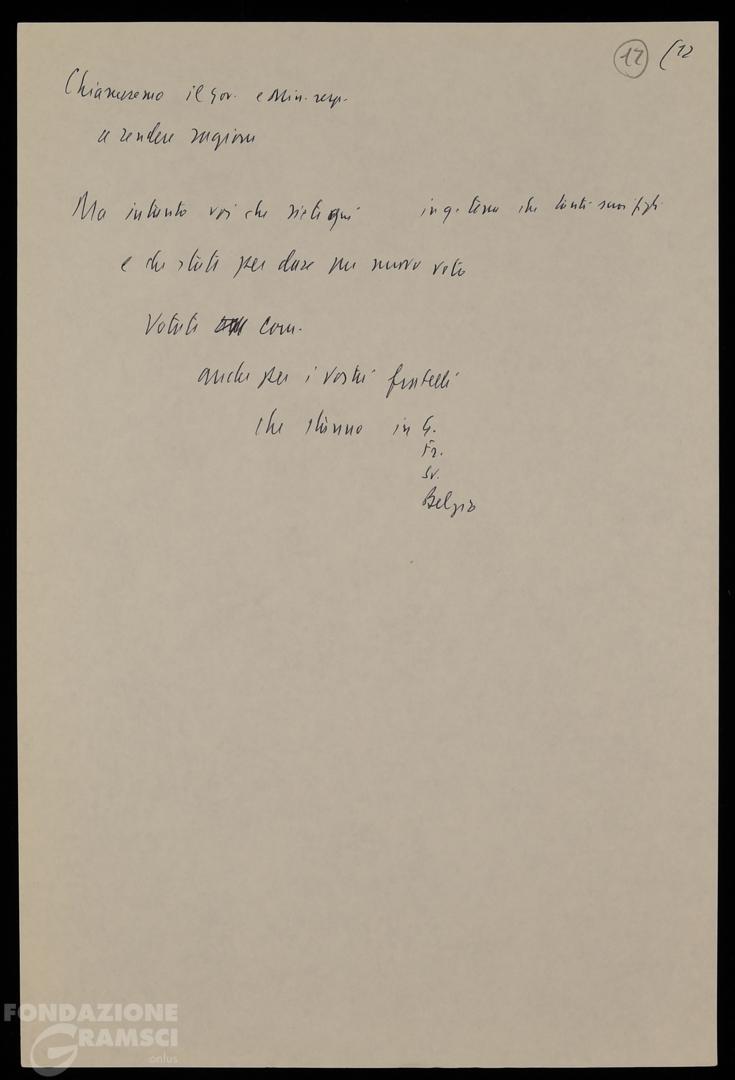 12 (12
Chiameremo il Gov. e Min. resp.
a rendere ragione
Ma intanto voi che siete qui in q. terra che tanti suoi figli
e che state per dare un nuovo voto
Votate com.
anche per i vostri fratelli
che stanno in G.
Fr.
Sv.
Belgio
FONDAZIONE
GRAMSCI
onlus